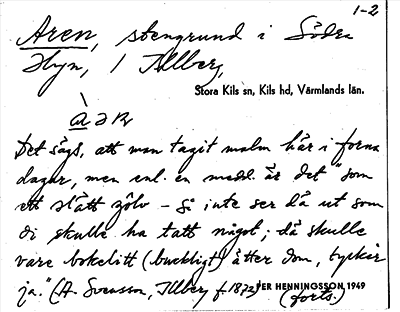 1-2
Aren, stengrund i Södra
Hyn, 1 Illberg,
Stora Kils sn, Kils hd, Värmlands län.
Det sägs, att man tagit malm här i forna
dagar, men enl. en medd. är det "som
ett slätt gôlv - så inte ser då ut som
di skulle ha tatt något; då skulle
vare bokelitt (buckligt) åtter dom, tycker
ja." (A. Svensson, Illberg f. 1872)
PER HENNINGSSON 1949
(forts.)